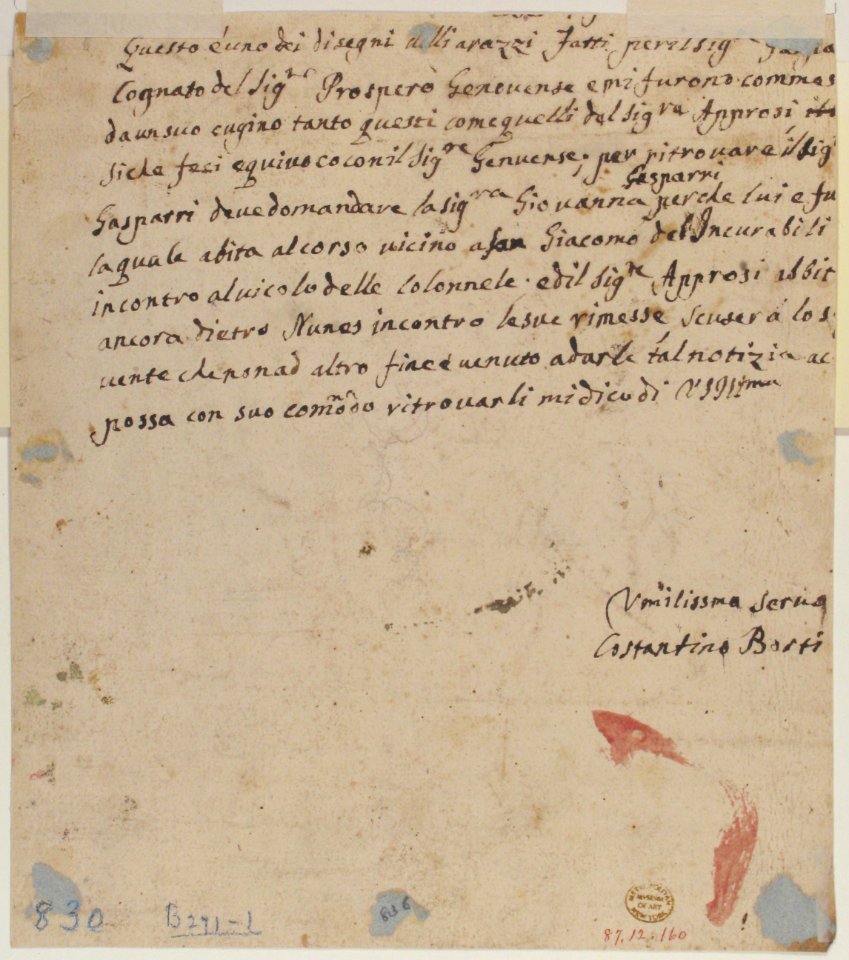 Questo é uno dei disegni delli arazzi fatti per il sig
Cognato del Sig.re Prospero Genovense e mi furono commes
da un suo cugino tanto questi come quelli del Sig.ra Approsi,
siche feci equivoco con il Sig.re Genuense; per ritrovare il Sig
Gasparri
Gasparri deve domandare la sig.ra Giovanna perche lui e fu
la quale abita al corso vicino a san Giacomo del Incurabili
incontro al vicolo delle Colonnele. ed il Sig.re Approsi abit
ancora dietro Nunes incontro le sue rimesse, scuserá lo s
vente che non ad altro fine é venuto a darle tal notizia ac
possa con suo commodo ritrovarli mi dico di VSIllma
Vmilissma Servo
Costantino Borti
830
B 271-1
METROPOLITAN MUSEUM OF ART NEW YORK
87.12.160